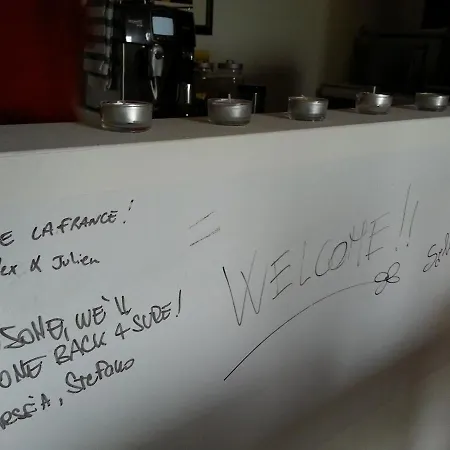 E LA FRANCE!
ex & Julien
SOME, WE'LL
OME BACK 4 SURE!
Stefano
WELCOME!!